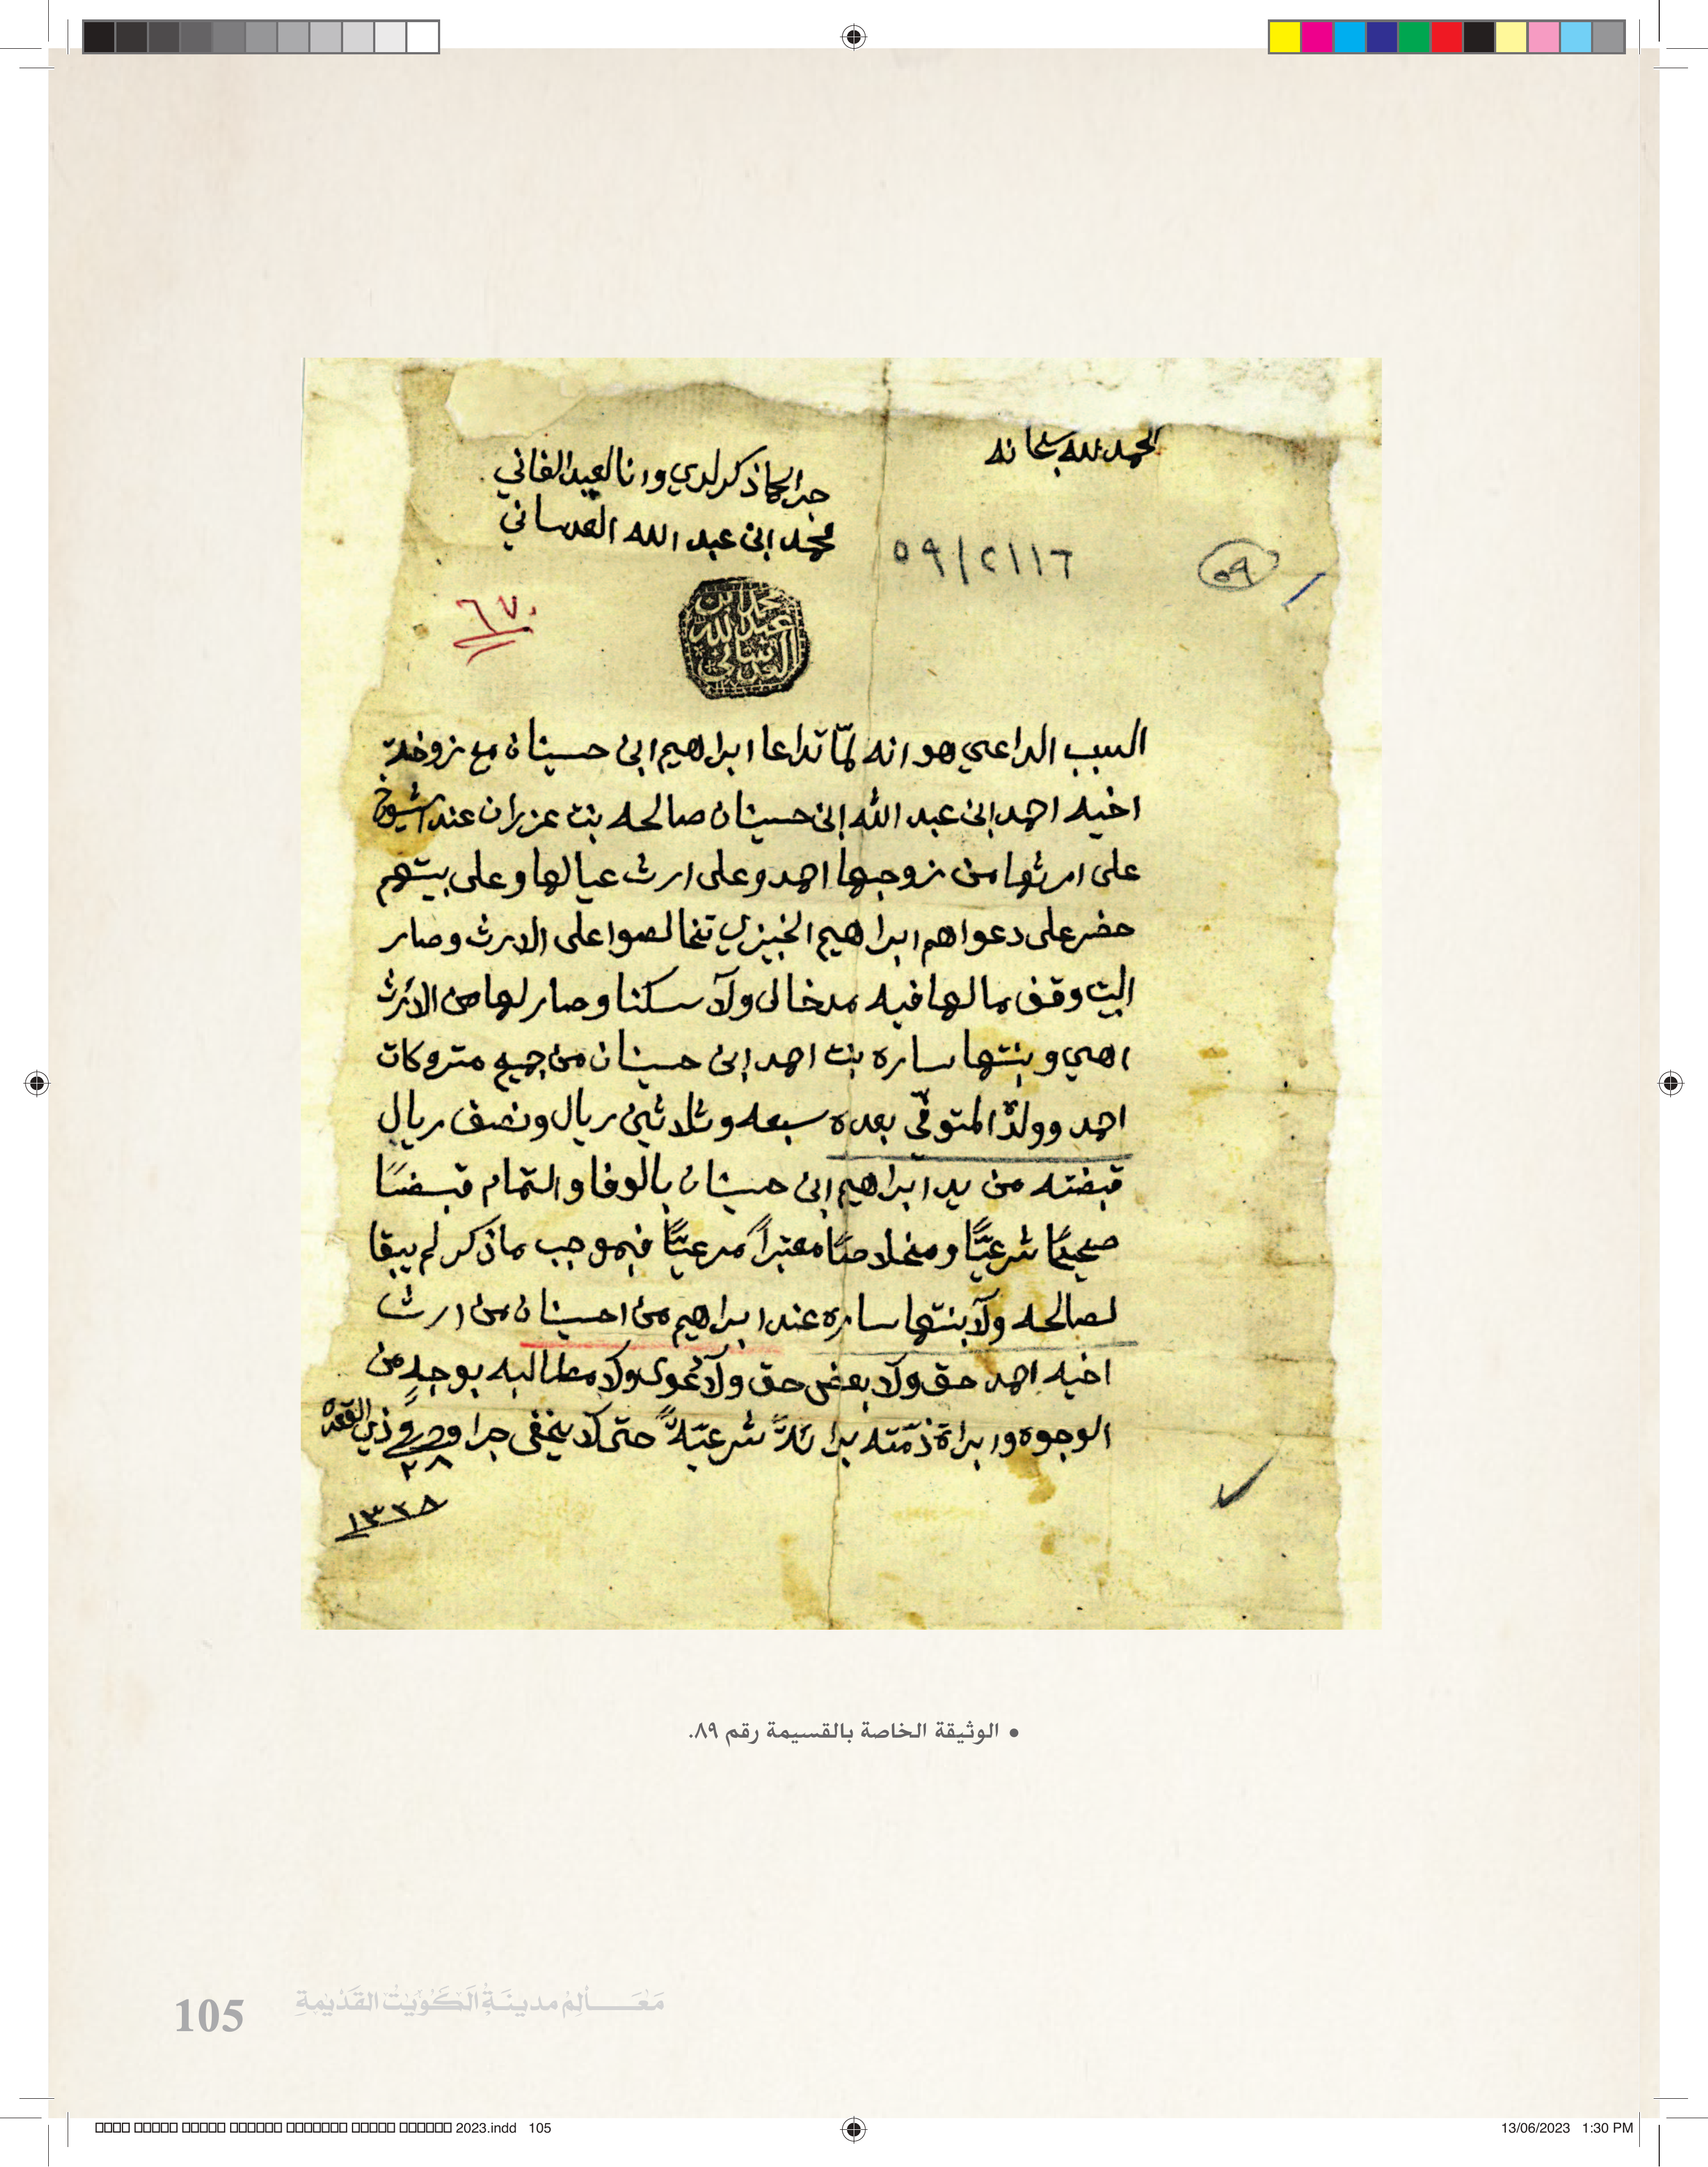 الحمد لله سبحانه
جرا كما ذكر لدي وانا العبد الفاني
محمد ابن عبد الله العدساني
٥٩/٢١١٦
٥٩
٦٧٠
محمد بن
عبد الله
العدساني
السبب الداعي هو انه لمّا تداعا ابراهيم ابن حسينان مع زوجة
اخيه احمد ابن عبد الله ابن حسينان صالحه بنت عزران عند الشيوخ
على ارثها من زوجها احمد وعلى ارث عيالها وعلى بيتهم
حضر على دعواهم ابراهيم الخبيزي تخالصوا على الارث وصار
البيت وقف ما لها فيه مدخال ولا سكنا وصار لها من الارث
اهي وبنتها ساره بنت احمد ابن حسينان من جميع متروكات
احمد وولده المتوفي بعده سبعه وثلاثين ريال ونصف ريال
قبضته من يد ابراهيم ابن حسينان بالوفا والتمام قبضًا
صحيحًا شرعيًّا ومخلاصًا معتبراً مرعيًّا فبموجب ما ذكر لم يبقا
لصالحه ولا بنتها ساره عند ابراهيم من احسينان من ارث
اخيه احمد حق ولا بعض حق ولا دعوى ولا مطالبه بوجهٍ من
الوجوه وابراة ذمّته براءةً شرعيّةً حتى لا يخفى جرا وحرر في ذي القعده
٢٨
١٣٢٨
• الوثيقة الخاصة بالقسيمة رقم ٨٩.
مَعَالِمُ مدينَةِ الكُوَيْت القَدْيمَةِ
105
2023.indd 105
13/06/2023 1:30 PM